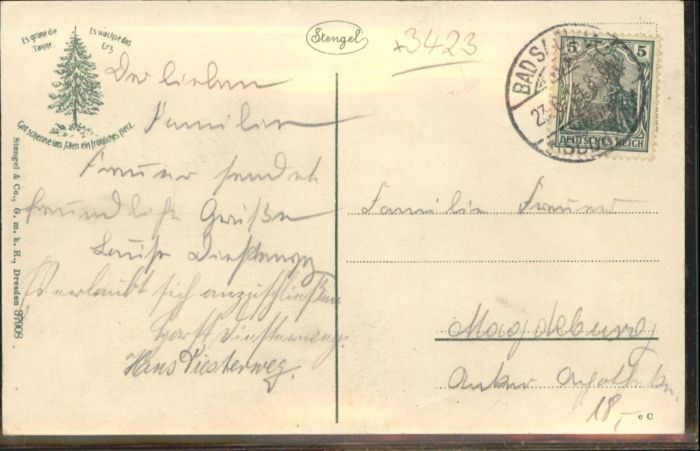 Es grüne die
Tanne.
Es wachse das
Erz
Gott schenke uns Allen ein fröhliches Herz.
Stengel
+3423
BAD SA
23.
5 5
DEUTSCHES REICH
Der lieben
Familie
Freuer sendet
freundliche Grüße
Louise Diesterweg
Es erlaubt sich anzuschließen
Horst Diesterweg.
Hans Diesterweg.
Familie Freuer
Magdeburg
Anker
18,-
c C
Stengel & Co., G. m. b. H., Dresden 37908